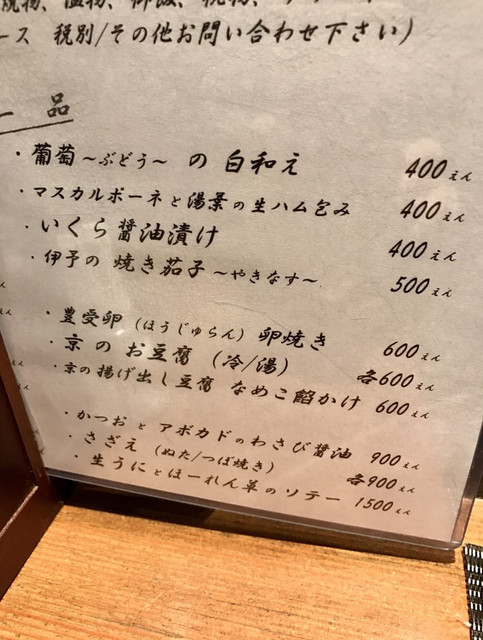 焼物、温物、御飯、椀物、
ース 税別/その他お問い合わせ下さい)
一品
・葡萄～ぶどう～ の 白和え 400えん
・マスカルポーネと湯葉の生ハム包み 400えん
・いくら醤油漬け 400えん
・伊予の 焼き茄子 ～やきなす～ 500えん
・豊受卵 (ほうじゅらん) 卵焼き 600えん
・京のお豆腐 (冷/湯) 各600えん
・京の揚げ出し豆腐 なめこ餡かけ 600えん
・かつおとアボカドのわさび醤油 900えん
・さざえ (ぬた/つぼ焼き) 各900えん
・生うにとほーれん草のソテー 1500えん